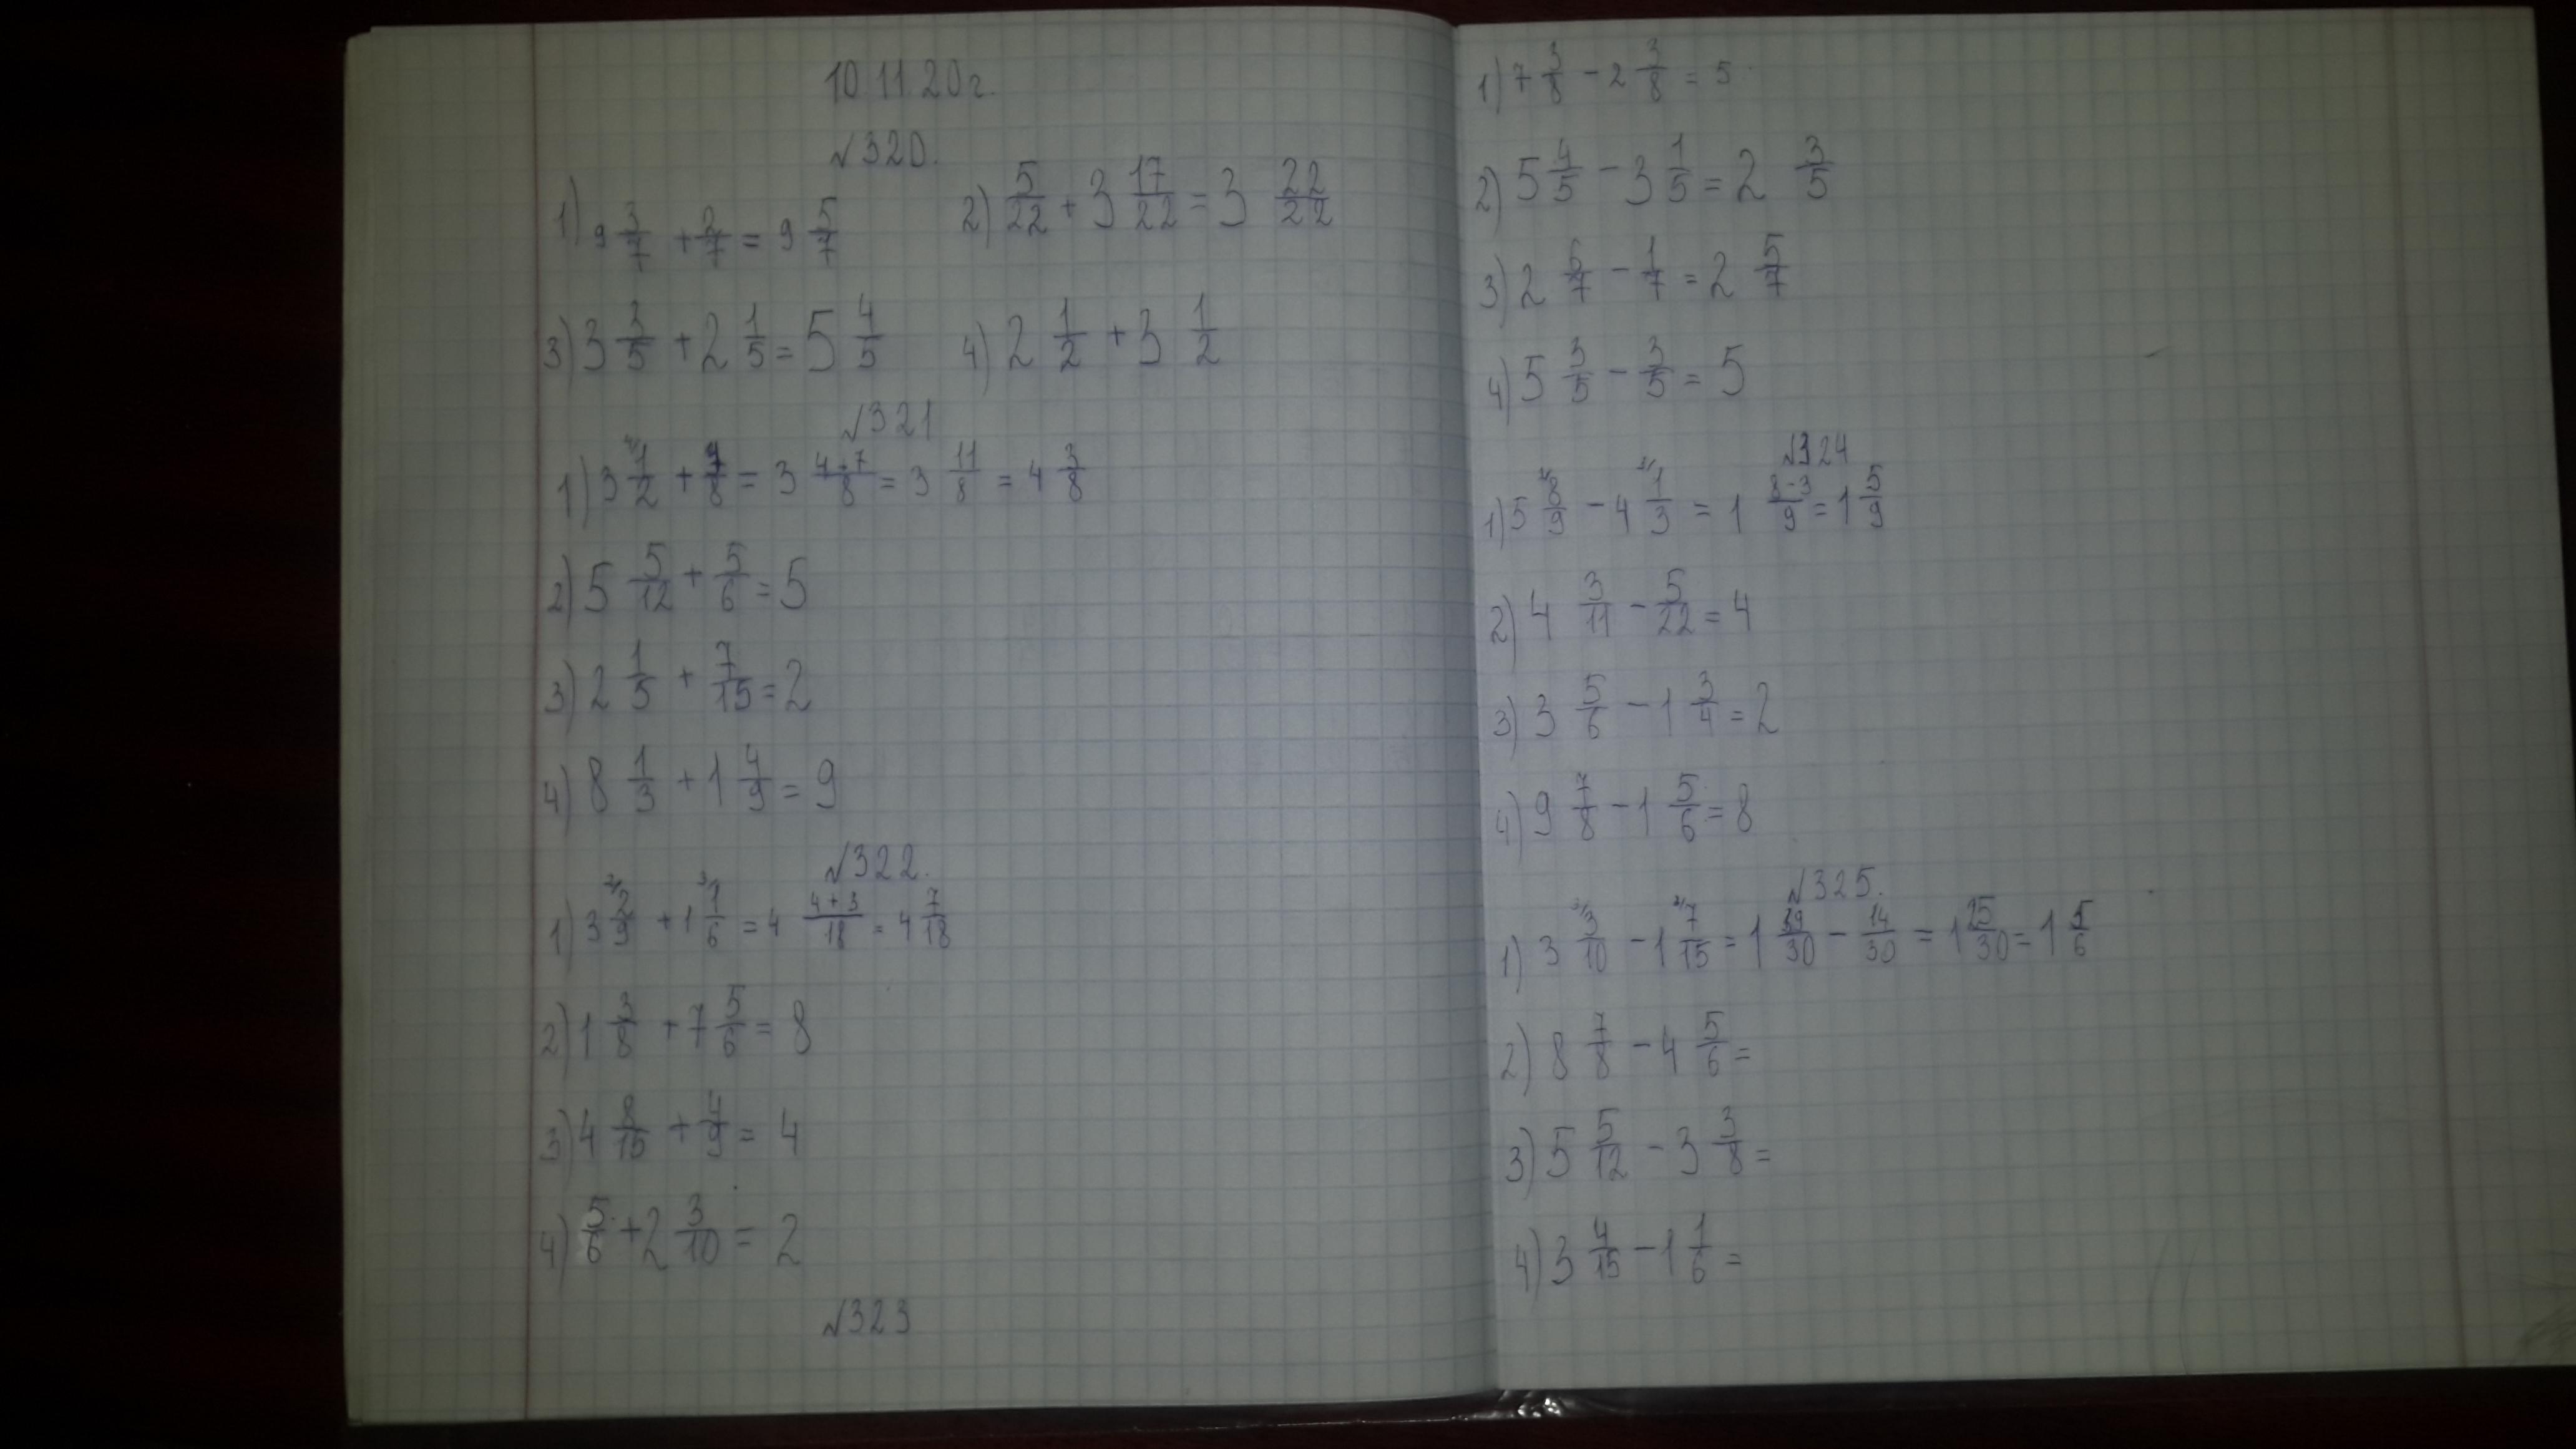 10.11.20г.
№320.
1) 9 3/7 + 2/7 = 9 5/7
2) 5/22 + 3 17/22 = 3 22/22
3) 3 3/5 + 2 1/5 = 5 4/5
4) 2 1/2 + 3 1/2
№321
1) 3 4/ 1/2 + 7/8 = 3 4+7/8 = 3 11/8 = 4 3/8
2) 5 5/12 + 5/6 = 5
3) 2 1/5 + 7/15 = 2
4) 8 1/3 + 1 4/9 = 9
№322.
1) 3 2/ 2/9 + 1 3/ 1/6 = 4 4+3/18 = 4 7/18
2) 1 3/8 + 7 5/6 = 8
3) 4 8/15 + 4/9 = 4
4) 5/6 + 2 3/10 = 2
№323
1) 7 3/8 - 2 3/8 = 5
2) 5 4/5 - 3 1/5 = 2 3/5
3) 2 6/7 - 1/7 = 2 5/7
4) 5 3/5 - 3/5 = 5
№324
1) 5 1/ 8/9 - 4 3/ 1/3 = 1 8-3/9 = 1 5/9
2) 4 3/11 - 5/22 = 4
3) 3 5/6 - 1 3/4 = 2
4) 9 7/8 - 1 5/6 = 8
№325.
1) 3 3/ 3/10 - 1 2/ 7/15 = 1 39/30 - 14/30 = 1 25/30 = 1 5/6
2) 8 7/8 - 4 5/6 =
3) 5 5/12 - 3 3/8 =
4) 3 4/15 - 1 1/6 =